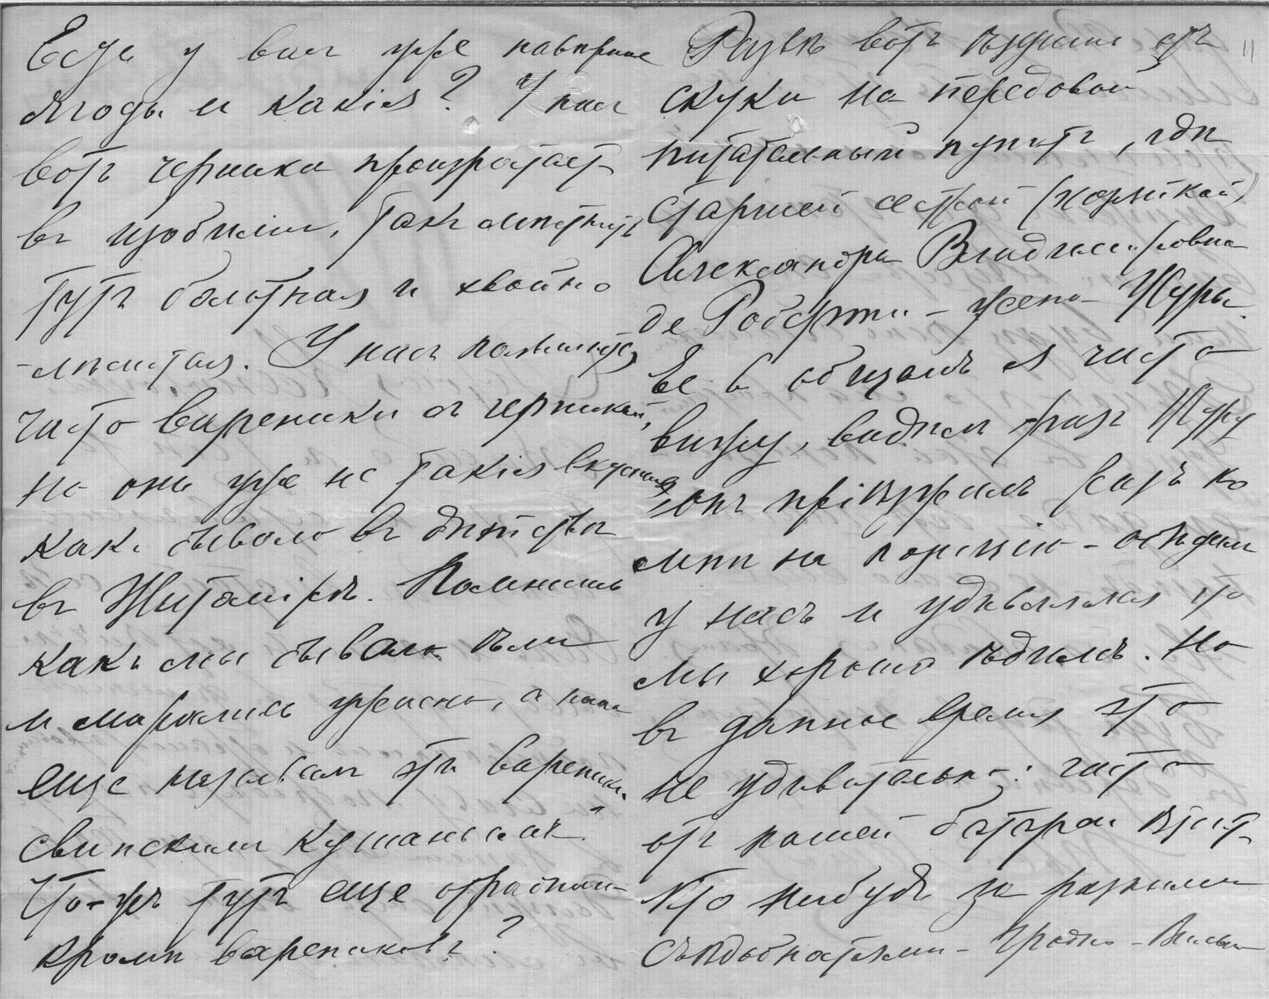 Есть у вас уже наверное
ягоды и какія? У нас
вотъ черника произростаетъ
въ изобиліи, такъ мѣстность
тутъ болотная и хвойно
-лѣсистая. У насъ
часто вареники съ черникой,
но они уже не такія вкусныя
какъ бывало въ дѣтствѣ
въ Житомірѣ. Помнишь
какъ мы бывало ѣли
и марались ужасно, а папа
еще называлъ эти вареники
свинскимъ кушаньемъ.
Что-жъ тутъ еще отраднаго
кромѣ варениковъ?
Развѣ вотъ ѣздишь отъ
скуки на передовой
питательный пунктъ, гдѣ
старшей сестрой (хозяйкой)
Александра Владиславовна
де Роберти - жена Журы.
Ее въ общемъ я часто
вижу, видѣлъ разъ Журу
онъ пріѣзжалъ разъ ко
мнѣ на позицію - обѣдалъ
у насъ и удивлялся что
мы хорошо ѣдимъ. Но
въ данное время это
не удивительно: часто
отъ нашей батареи ѣздитъ
кто нибудь за разными
съѣдобностями - Гродно - Вильно